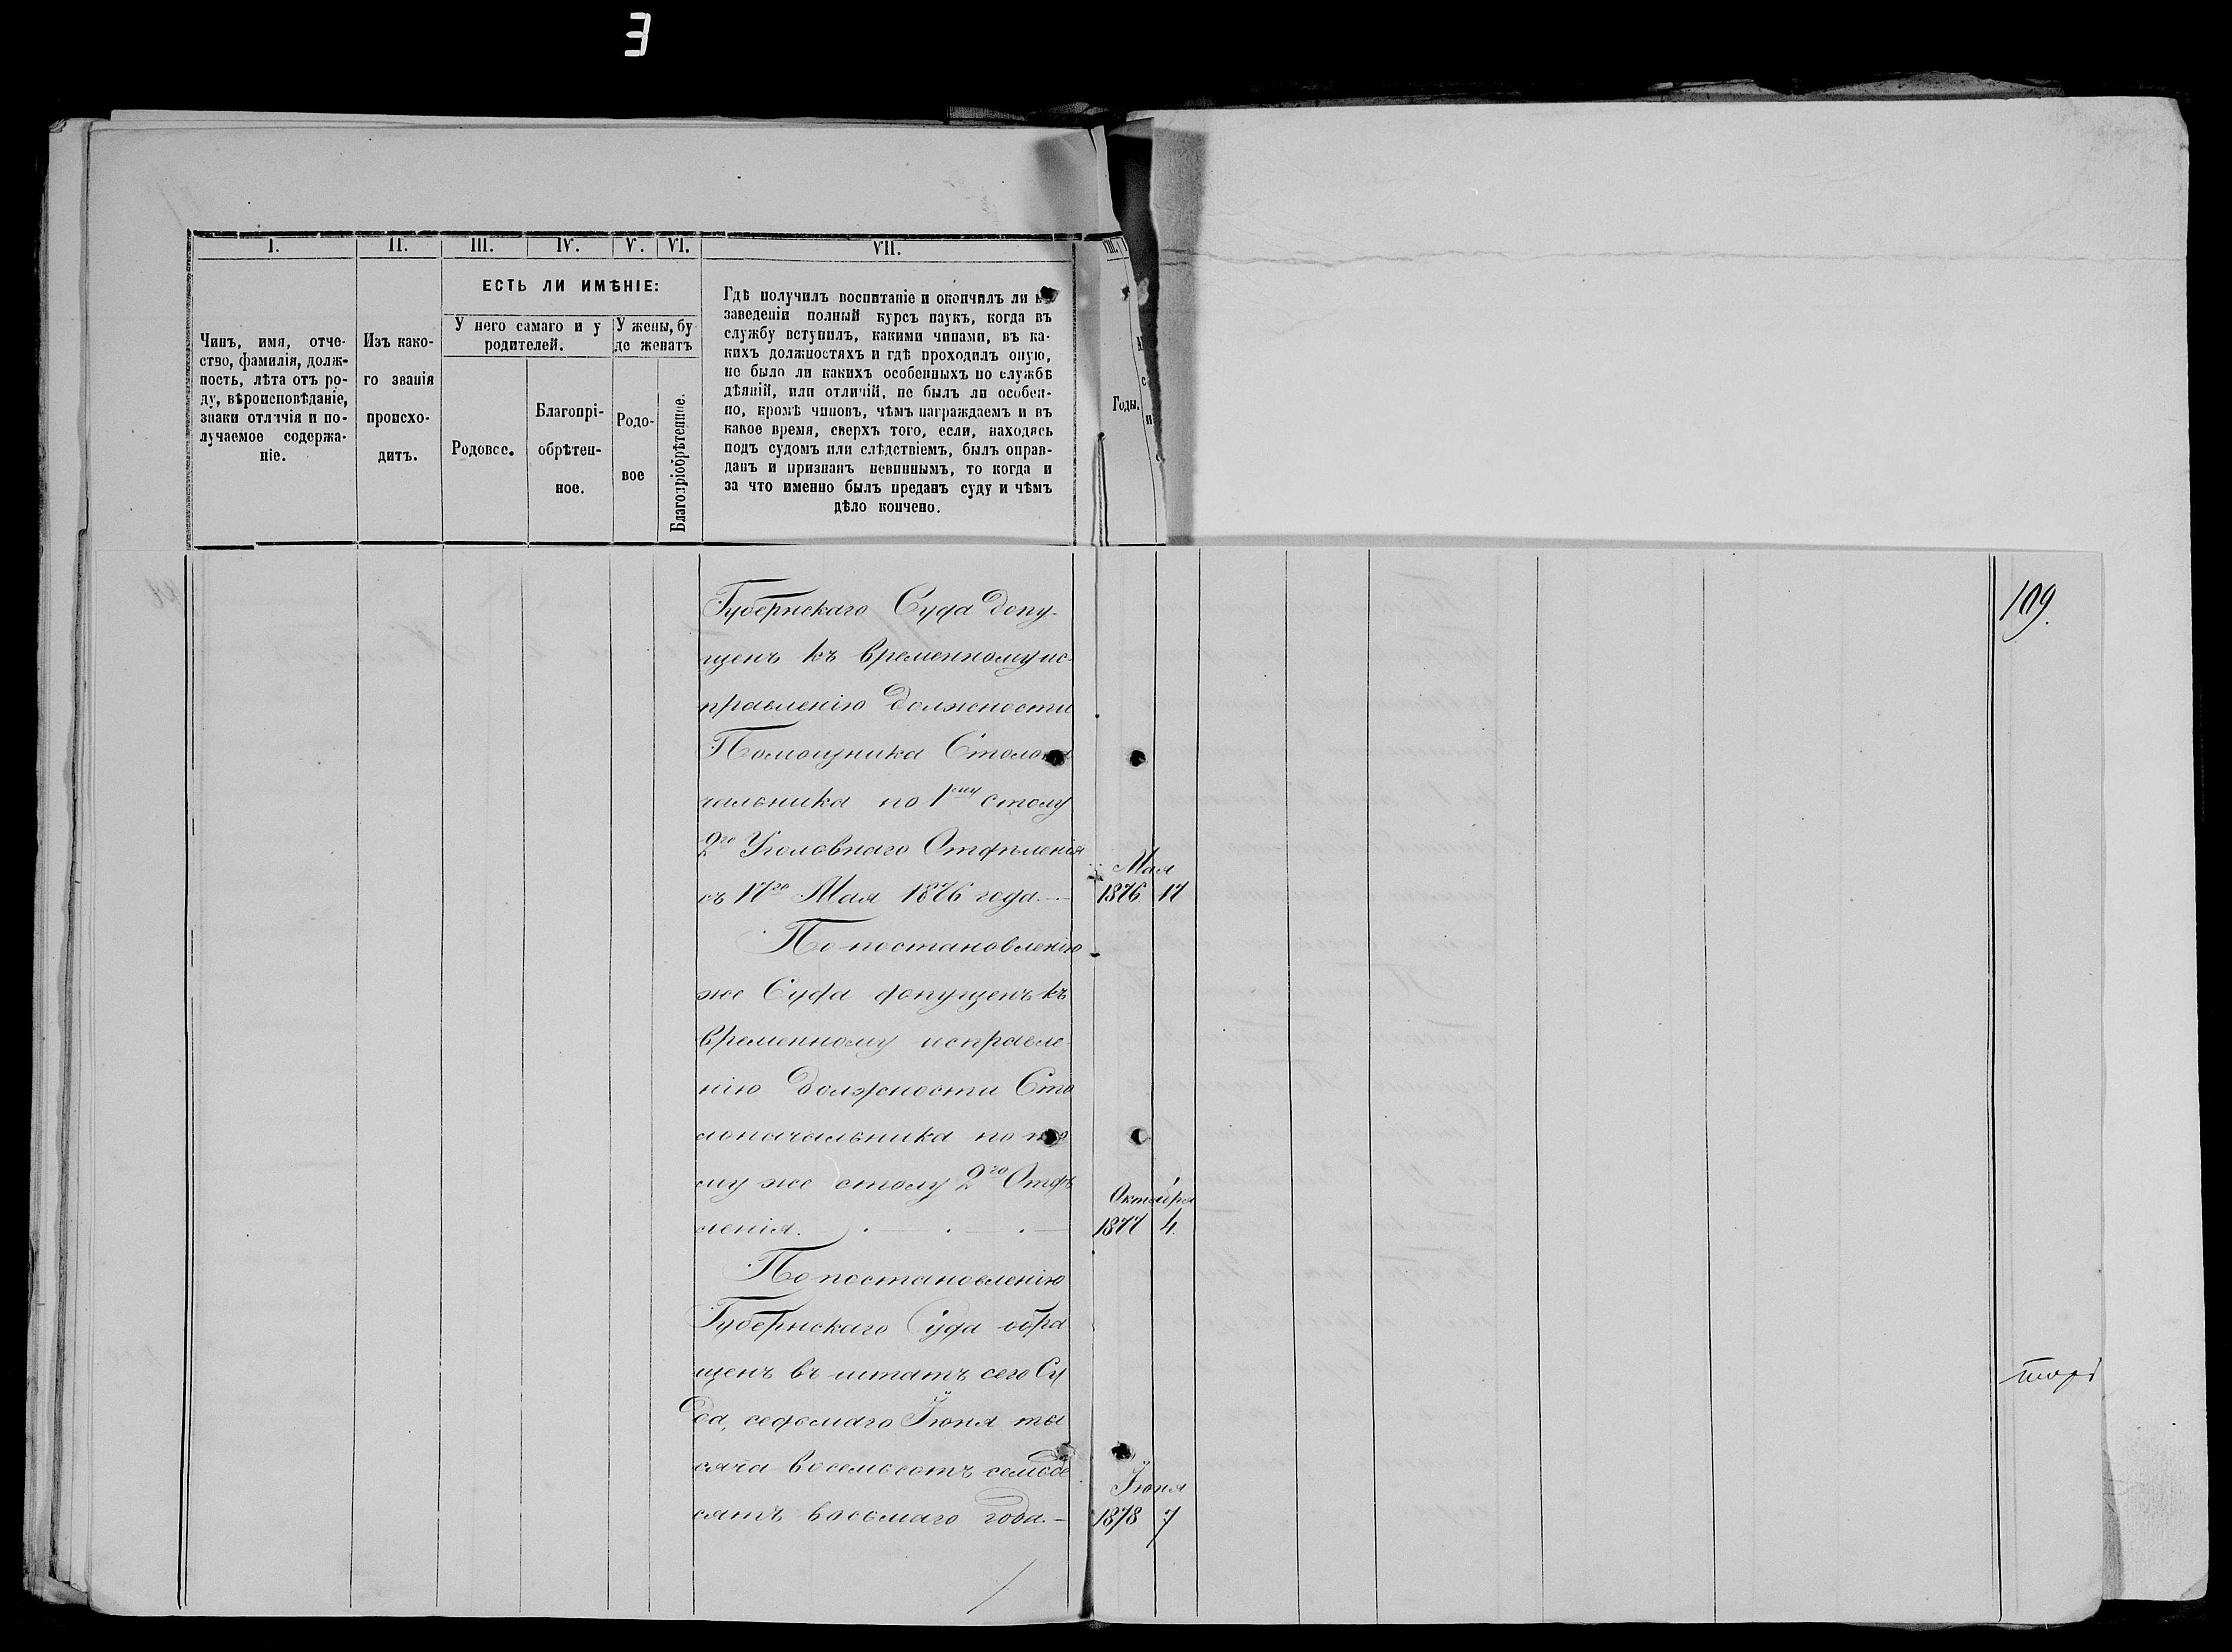 E
I.
II.
III.
IV.
V.
VI.
VII.
VIII.
Чинъ, имя, отче-
ство, фамилія, долж-
ность, лѣта отъ ро-
ду, вѣроисповѣданіе,
знаки отличія и по-
лучаемое содержа-
ніе.
Изъ како-
го званія
происхо-
дитъ.
ЕСТЬ ЛИ ИМѢНІЕ:
У него самаго и у
родителей.
У жены, бу
де женатъ
Родовое.
Благопрі-
обрѣтен-
ное.
Родо-
вое
Благопріобрѣтенное.
Гдѣ получилъ воспитаніе и окончилъ ли въ
заведеніи полный курсъ наукъ, когда въ
службу вступилъ, какими чинами, въ ка-
кихъ должностяхъ и гдѣ проходилъ оную,
не было ли какихъ особенныхъ по службѣ
дѣяній, или отличій, не былъ ли особен-
но, кромѣ чиновъ, чѣмъ награждаемъ и въ
какое время, сверхъ того, если, находясь
подъ судомъ или слѣдствіемъ, былъ оправ-
данъ и признанъ невиннымъ, то когда и
за что именно былъ преданъ суду и чѣмъ
дѣло кончено.
Годы.
Губернскаго Суда допу-
щенъ къ временному ис-
правленію должности
Помощника Столона
чальника по 1му столу
2го Уголовнаго Отдѣленія
съ 17го Мая 1876 года.
Мая
1876 17
По постановленію
же Суда допущенъ къ
временному исправле-
нію должности Сто
лоначальника по то
му же столу 2го Отдѣ
ленія.
Октября
1877 4.
По постановленію
Губернскаго Суда обра
щенъ въ штатъ сего Су
да, седьмаго Іюня ты
сяча восемьсотъ семьде
сятъ восьмаго года.-
Іюня
1878 7
109.